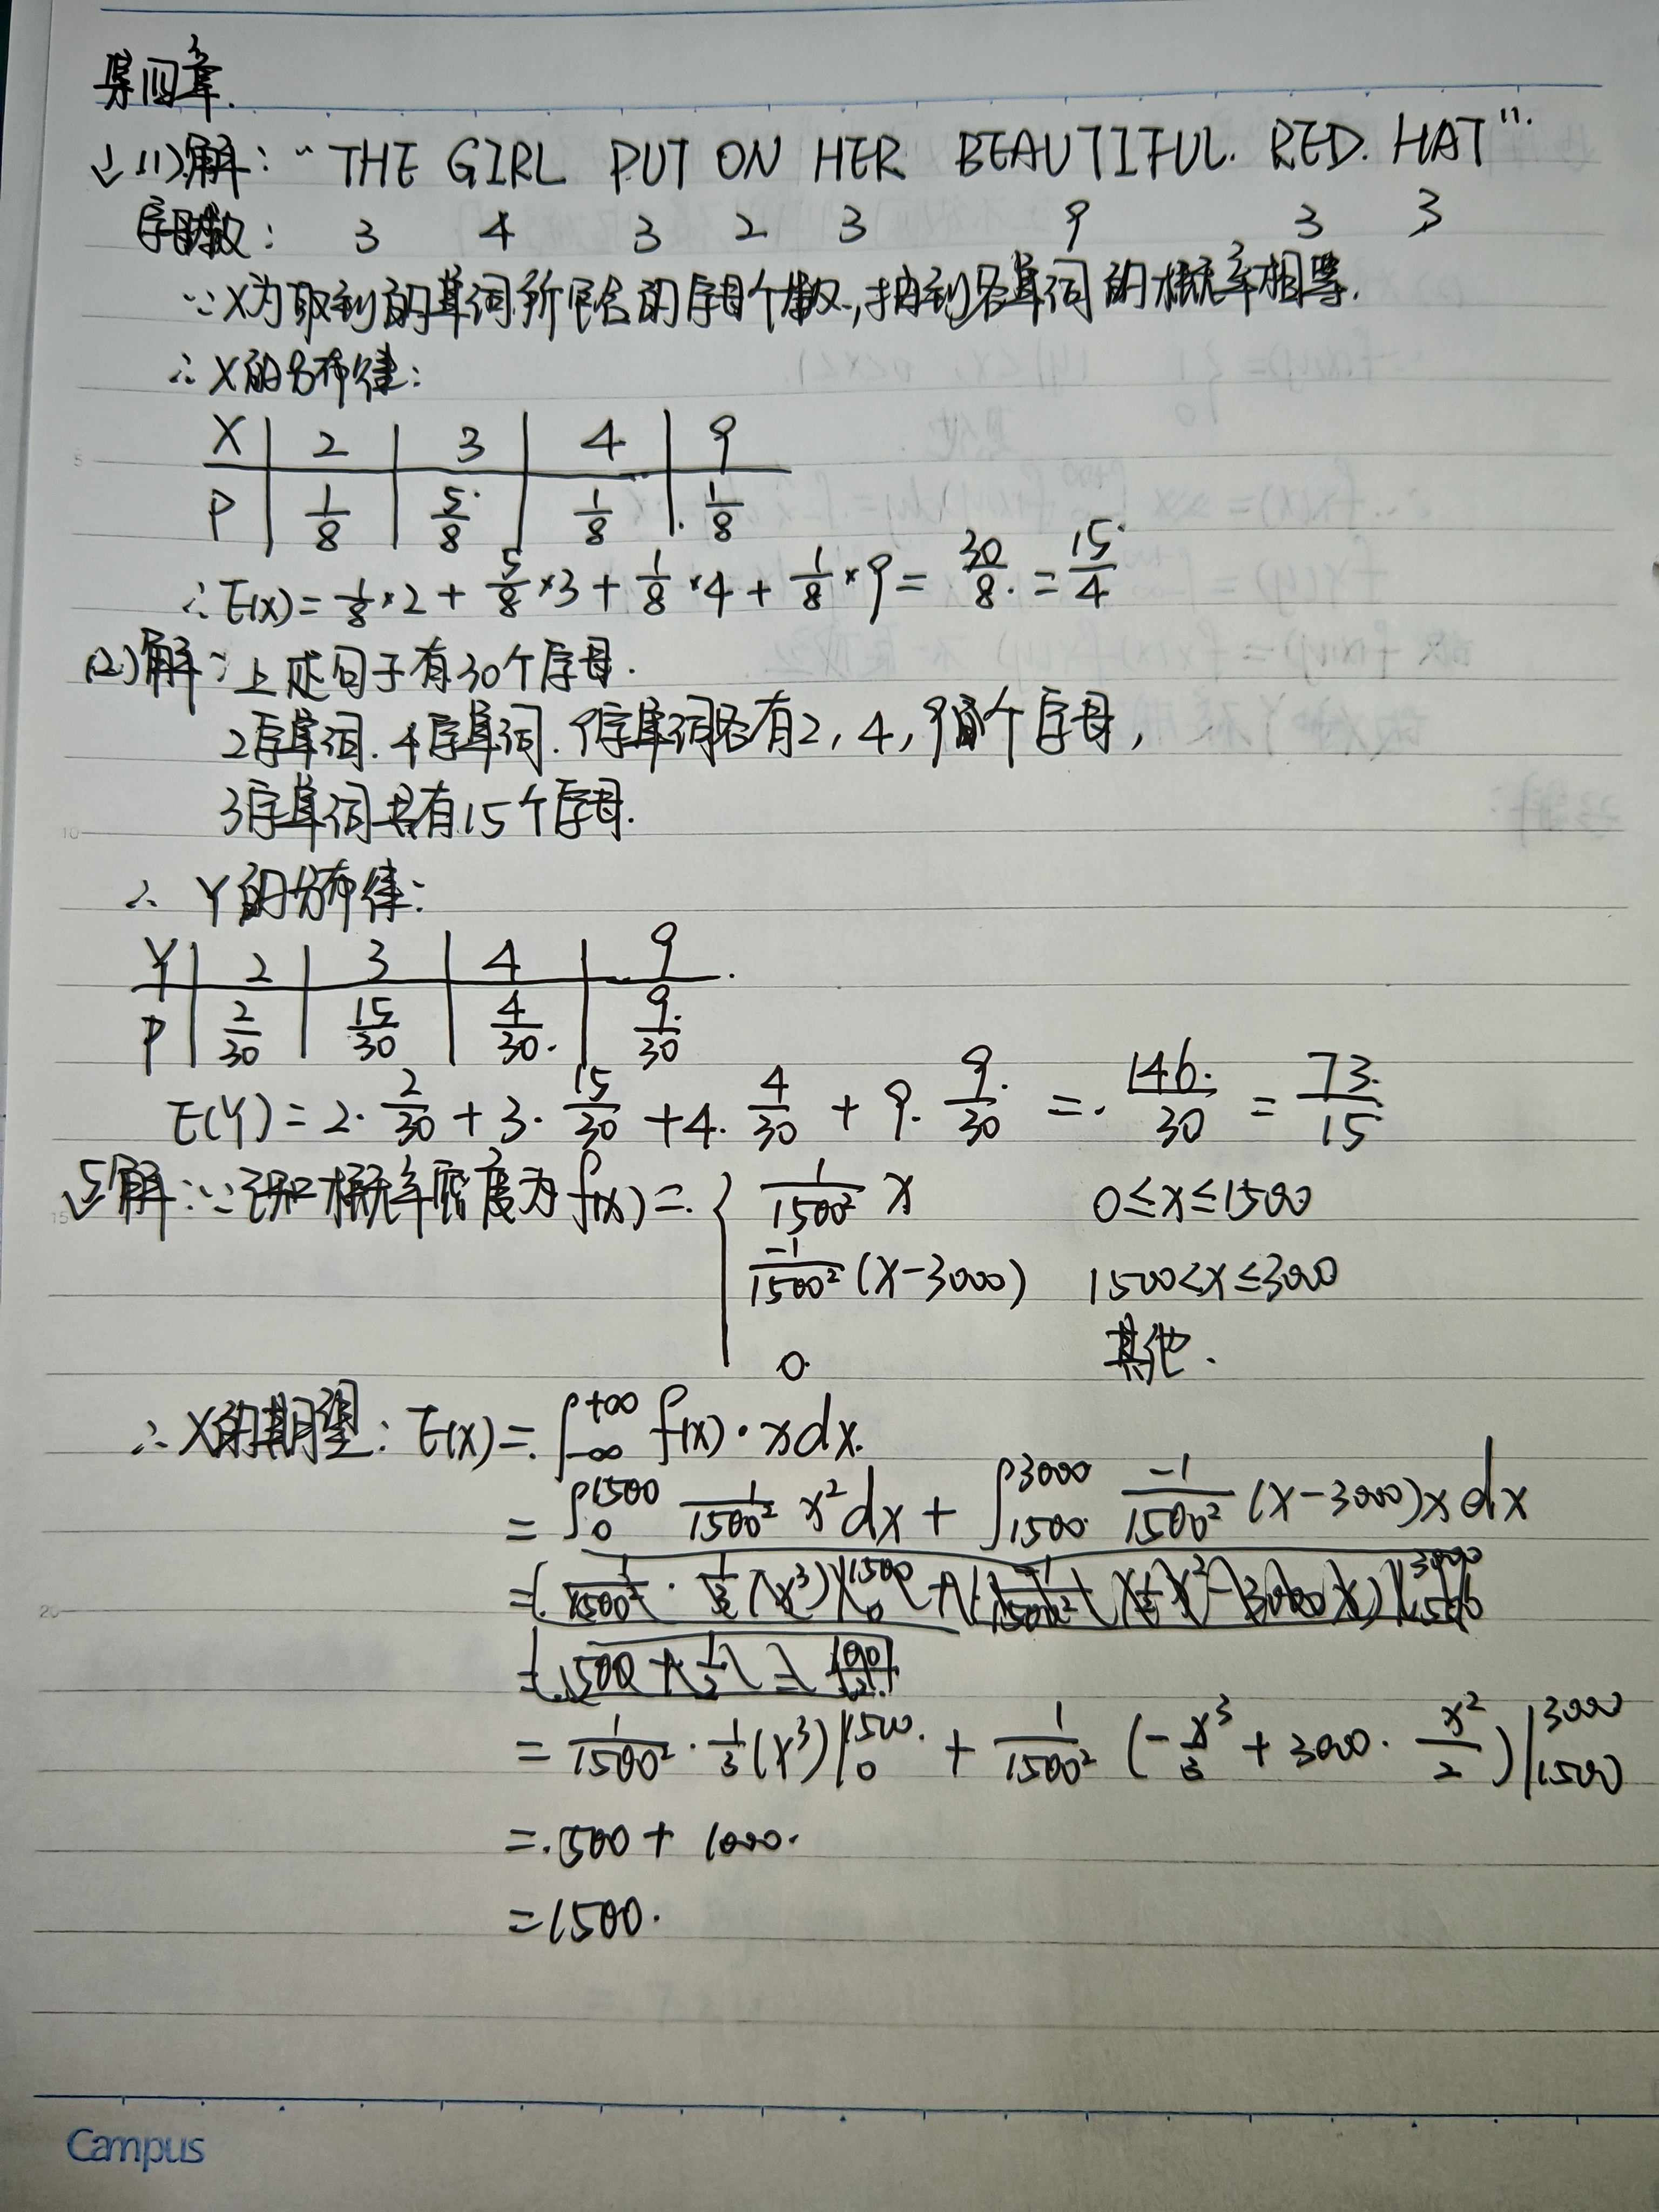 第四章.
1.(1)解: "THE GIRL PUT ON HER BEAUTIFUL. RED. HAT".
字母数: 3 4 3 2 3 9 3 3
∵X为取到的单词所包含的字母个数,抽到各单词的概率相等.
∴X的分布律:
X 2 3 4 9
P 1/8 5/8 1/8 1/8
∴E(X)=1/8×2+5/8×3+1/8×4+1/8×9=30/8=15/4
(2)解: 上述句子有30个字母.
2字单词.4字单词.9字单词各有2,4,9个字母,
3字单词共有15个字母.
∴Y的分布律:
Y 2 3 4 9
P 2/30 15/30 4/30 9/30
E(Y)=2·2/30+3·15/30+4·4/30+9·9/30=146/30=73/15
5解:∵已知概率密度为f(x)={ 1/1500² x 0≤x≤1500
-1/1500² (x-3000) 1500<x≤3000
0. 其他.
∴X的期望: E(X)=∫_{-∞}^{+∞} f(x)·xdx.
=∫_0^{1500} 1/1500² x²dx+∫_{1500}^{3000} -1/1500² (x-3000)xdx
=1/1500²·1/3(x³)|_0^{1500}+1/1500² (-x³/3+3000·x²/2)|_{1500}^{3000}
=500+1000.
=1500.
5
10
15
20
Campus